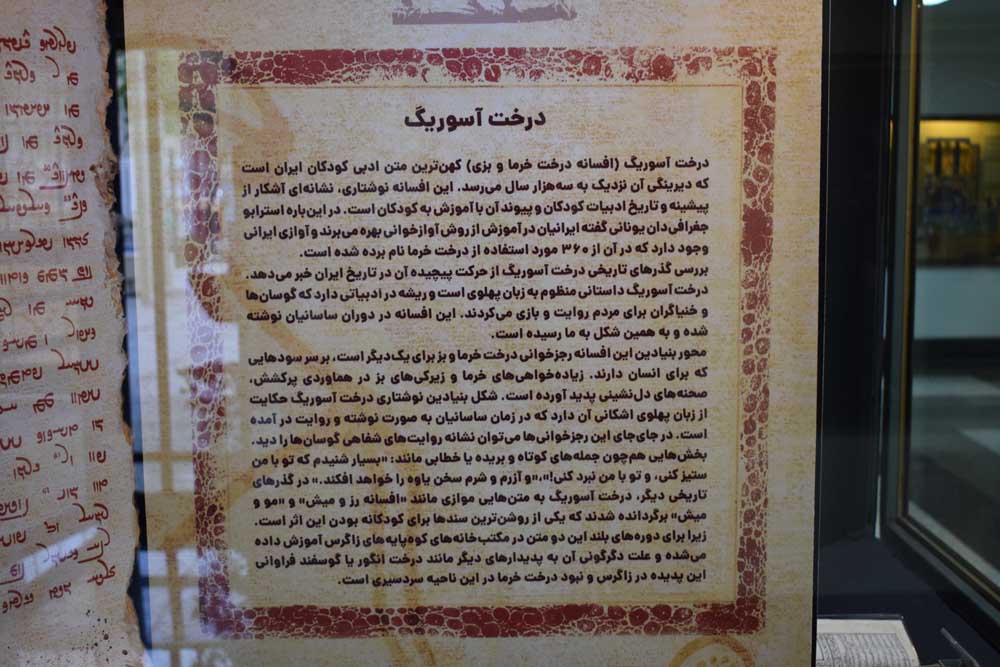 درخت آسوریگ
درخت آسوریگ (افسانه درخت خرما و بزی) کهن‌ترین متن ادبی کودکان ایران است
که دیرینگی آن نزدیک به سه‌هزار سال می‌رسد. این افسانه نوشتاری، نشانه‌ای آشکار از
پیشینه و تاریخ ادبیات کودکان و پیوند آن با آموزش به کودکان است. در این‌باره استرابو
جغرافی‌دان یونانی گفته ایرانیان در آموزش از روش آوازخوانی بهره می‌برند و آوازی ایرانی
وجود دارد که در آن از ۳۶۰ مورد استفاده از درخت خرما نام برده شده است.
بررسی گذرهای تاریخی درخت آسوریگ از حرکت پیچیده آن در تاریخ ایران خبر می‌دهد.
درخت آسوریگ داستانی منظوم به زبان پهلوی است و ریشه در ادبیاتی دارد که گوسان‌ها
و خنیاگران برای مردم روایت و بازی می‌کردند. این افسانه در دوران ساسانیان نوشته
شده و به همین شکل به ما رسیده است.
محور بنیادین این افسانه رجزخوانی درخت خرما و بز برای یک‌دیگر است، بر سر سودهایی
که برای انسان دارند. زیاده‌خواهی‌های خرما و زیرکی‌های بز در هماوردی پرکشش،
صحنه‌های دل‌نشینی پدید آورده است. شکل بنیادین نوشتاری درخت آسوریگ حکایت
از زبان پهلوی اشکانی آن دارد که در زمان ساسانیان به صورت نوشته و روایت در آمده
است. در جای‌جای این رجزخوانی‌ها می‌توان نشانه روایت‌های شفاهی گوسان‌ها را دید.
بخش‌هایی هم‌چون جمله‌های کوتاه و بریده یا خطابی مانند: «بسیار شنیدم که تو با من
ستیز کنی، و تو با من نبرد کنی!»،«و آزرم و شرم سخن یاوه را خواهد افکند.» در گذرهای
تاریخی دیگر، درخت آسوریگ به متن‌هایی موازی مانند «افسانه رز و میش» و «مو و
میش» برگردانده شدند که یکی از روشن‌ترین سندها برای کودکانه بودن این اثر است.
زیرا برای دوره‌های بلند این دو متن در مکتب‌خانه‌های کوه‌پایه‌های زاگرس آموزش داده
می‌شده و علت دگرگونی آن به پدیدارهای دیگر مانند درخت انگور یا گوسفند فراوانی
این پدیده در زاگرس و نبود درخت خرما در این ناحیه سردسیری است.